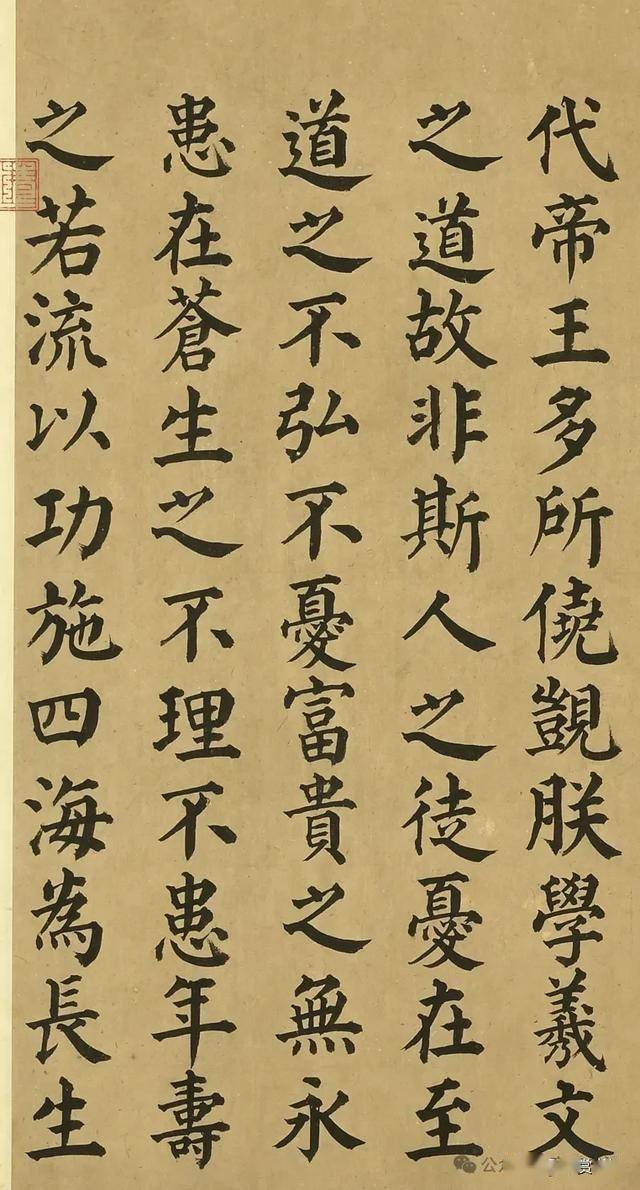 代帝王多所僥覬朕學羲文
之道故非斯人之徒憂在至
道之不弘不憂富貴之無永
患在蒼生之不理不患年壽
之若流以功施四海為長生
公众
赏